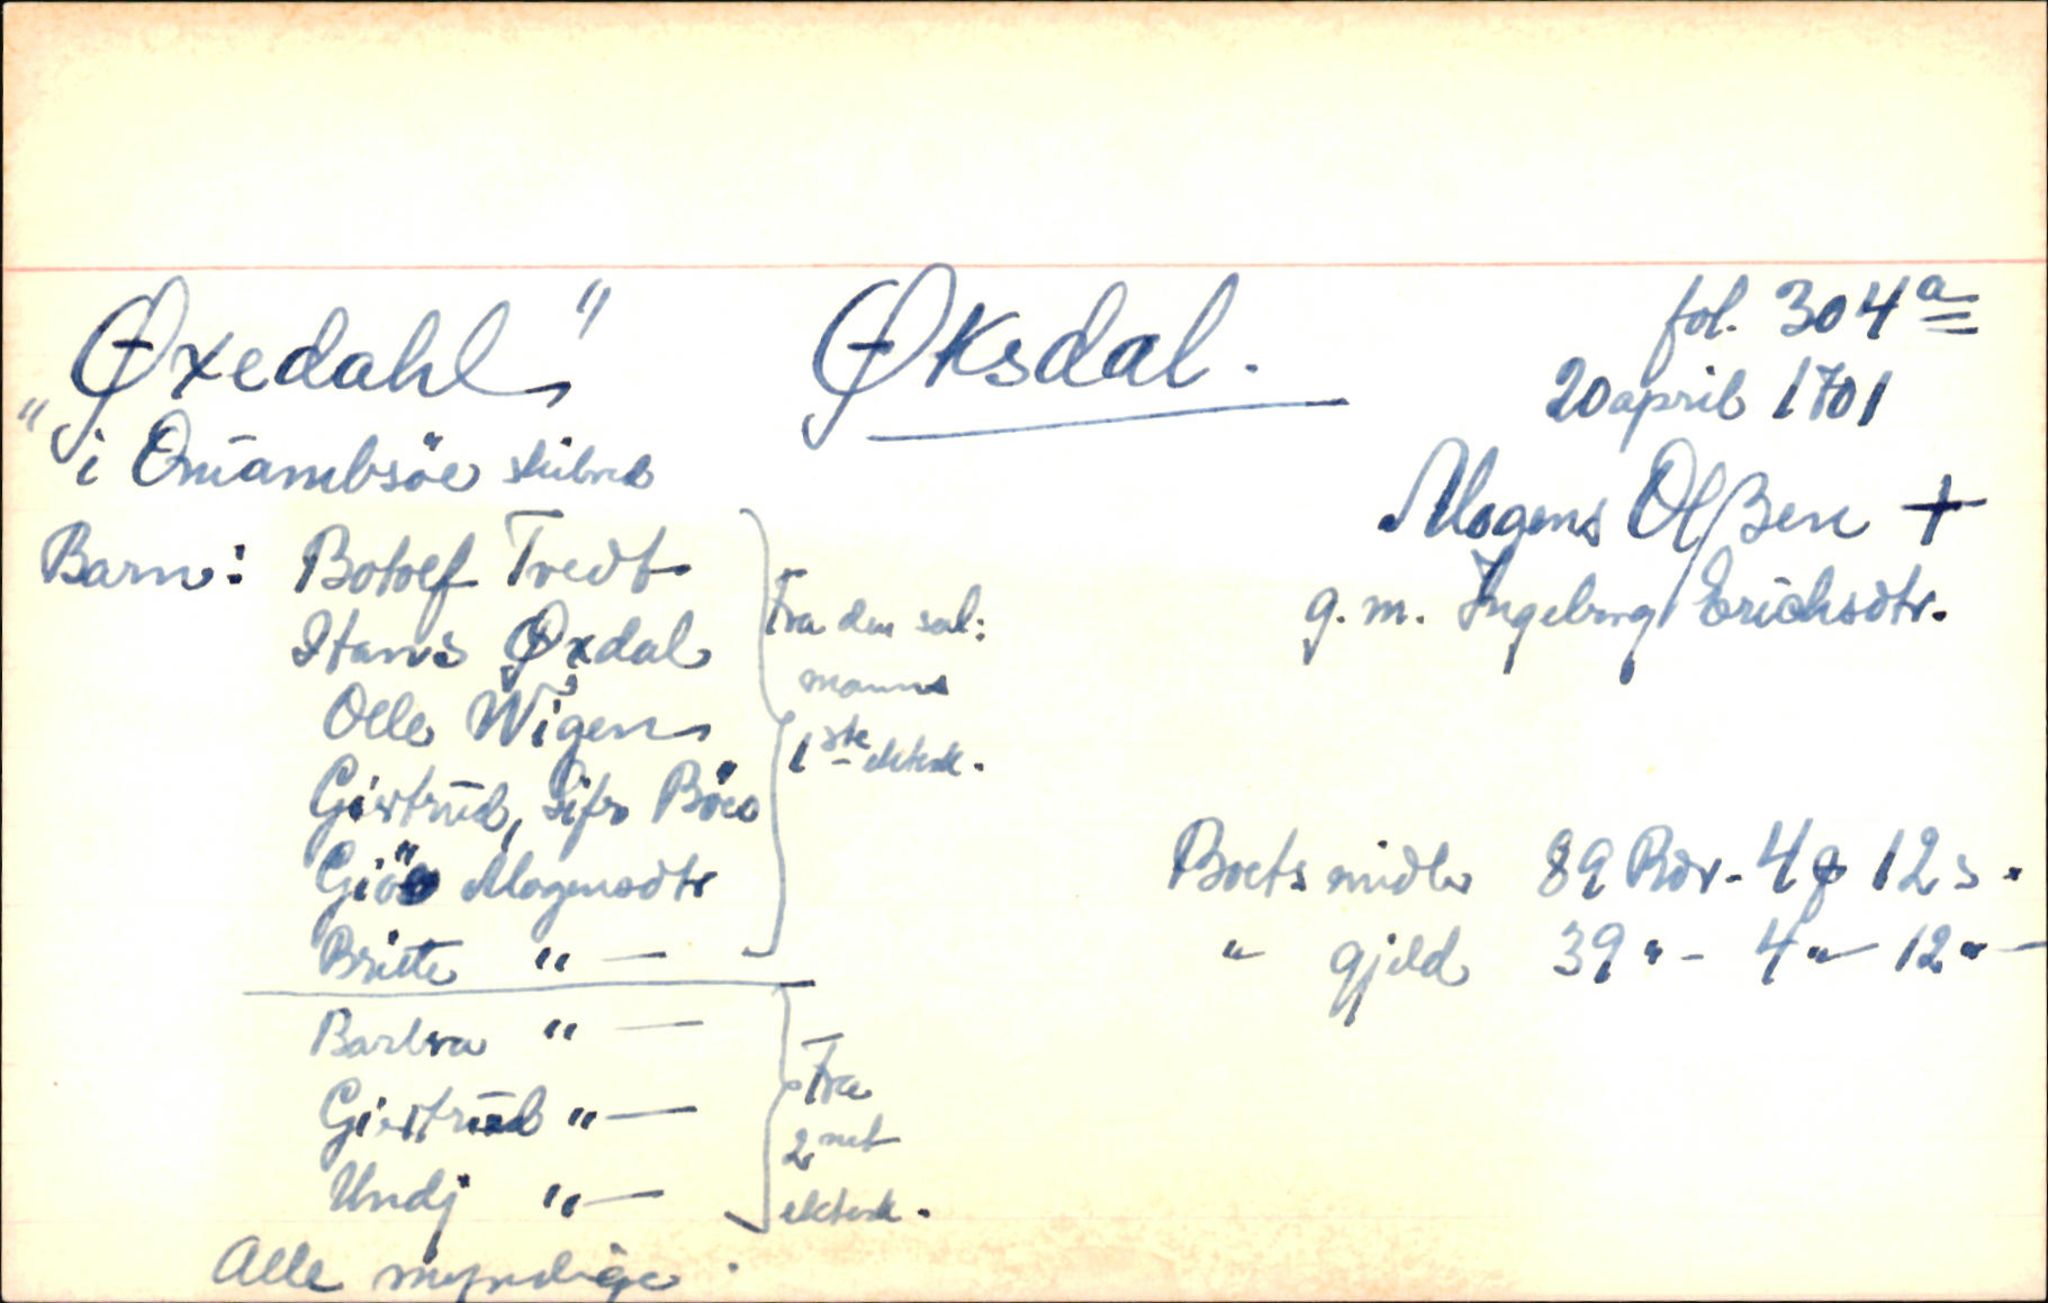 "Øxedahl" Øksdal. fol. 304a
20 april 1701
i Qvambsöe skibred
Mogens Olßen +
g. m. Ingeborg Erichsdtr.
Barn: Botolf Tvedt
Hans Øxdal
Olle Wigen
Giertrud, Sifr Böe
Giö Mogensdtr
Britte " —
Fra den sal:
manns
1ste ektesk.
Barbra " —
Giertrud " —
Undj " —
Fra
2net
ektesk.
Alle myndige.
Boets midler 89 Rdr - 4 12 s.
" gjeld 39 " - 4 " - 12 " -